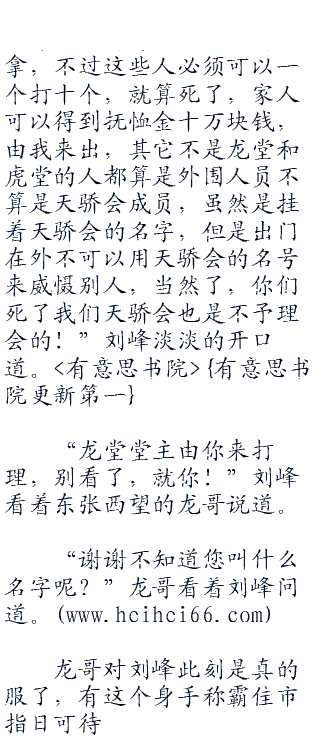 拿，不过这些人必须可以一
个打十个，就算死了，家人
可以得到抚恤金十万块钱，
由我来出，其它不是龙堂和
虎堂的人都算是外围人员不
算是天骄会成员，虽然是挂
着天骄会的名字，但是出门
在外不可以用天骄会的名号
来威慑别人，当然了，你们
死了我们天骄会也是不予理
会的！”刘峰淡淡的开口
道。<有意思书院>{有意思书
院更新第一}
“龙堂堂主由你来打
理，别看了，就你！”刘峰
看着东张西望的龙哥说道。
“谢谢不知道您叫什么
名字呢？”龙哥看着刘峰问
道。(www.hcihci66.com)
龙哥对刘峰此刻是真的
服了，有这个身手称霸住市
指日可待